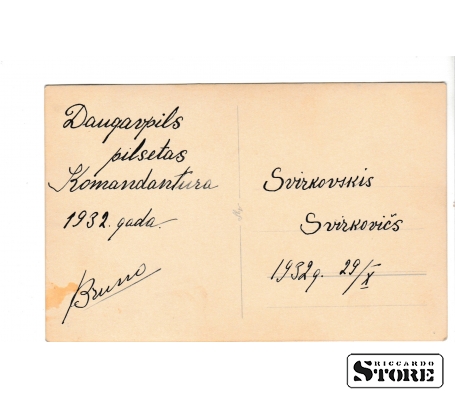 Daugavpils
pilsetas
Komandantura
1932. gada.
Bruno
Svirkovskis
Svirkovičs
1932g. 29/X
RICCARDO
STORE